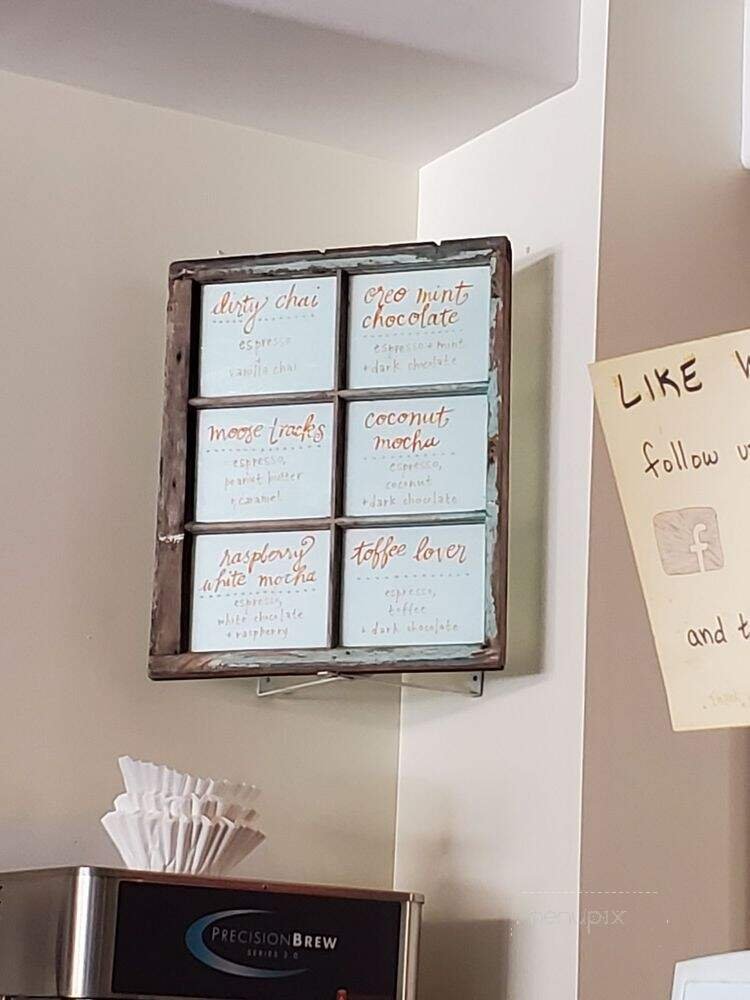 dirty chai
espresso
+
vanilla chai
oreo mint
chocolate
espresso + mint
+ dark chocolate
moose tracks
espresso,
peanut butter
+ caramel
coconut
mocha
espresso,
coconut
+ dark chocolate
raspberry
white mocha
espresso,
white chocolate
+ raspberry
toffee lover
espresso,
toffee
+ dark chocolate
LIKE
follow
f
and
PRECISIONBREW
SERIES 3.0
menupix